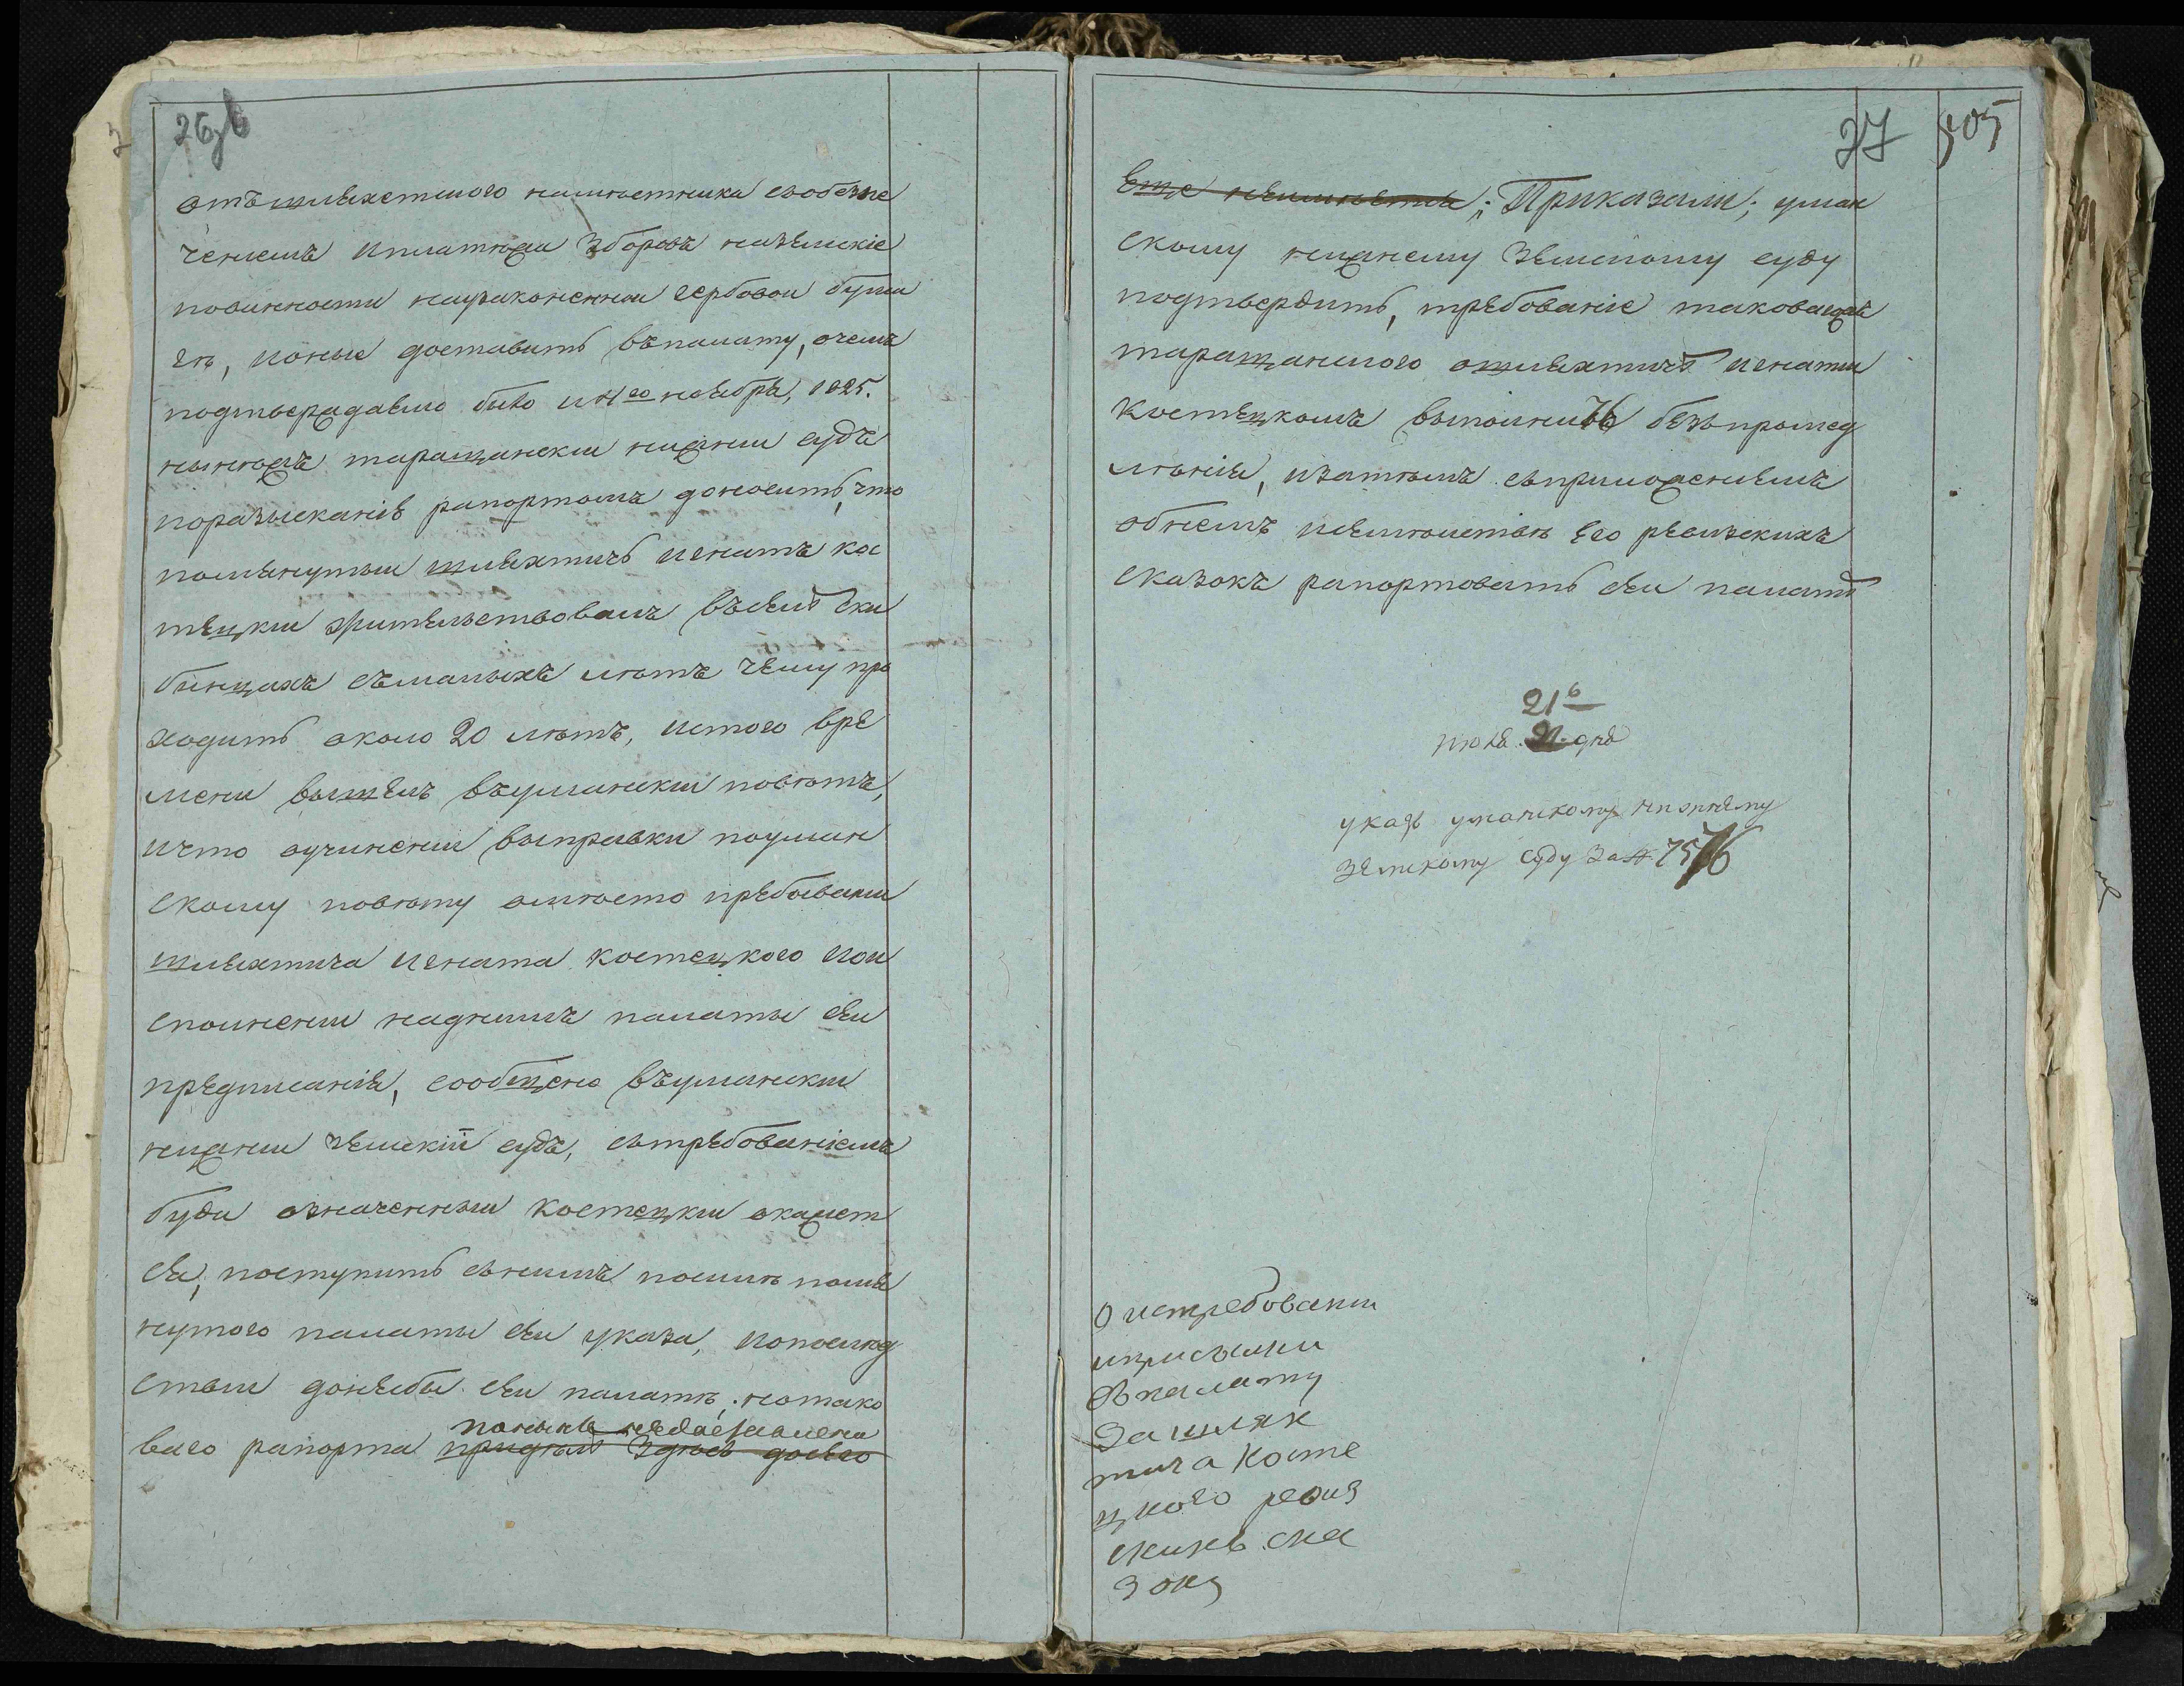 26 зв
отъ шляхетного намѣстника собезпе
ченіемъ иплатѣжи зборовъ наземскіе
повинности наузаконенной гербовой бума
гѣ, и оные доставить въ палату, очемъ
подтверждаемо было и 4го ноября, 1825.
нынѣжъ таращанскій нижній судъ
поразысканіѣ рапортомъ доноситъ, что
помянутый шляхтичъ игнатъ ко
тецкій жительствовалъ въселѣ ски
бинцахъ съмалыхъ лѣтъ чему про
ходитъ около 20 лѣтъ, истого вре
мени вышелъ въуманскій повѣтъ,
ичто оучиненіи выправки поуман
скому повѣту омѣсто пребываніи
шляхтича игната костецкого и ои
сполненіи надъ нимъ палаты сеи
предписанія, сообщено въуманскій
нижній земскій судъ, стребованіемъ
буди означенный костецкій окажет
ся, поступить снимъ посилѣ помя
нутого палаты сеи указа, и опослѣд
ствіи донеслбы сеи палатѣ, но тако
ваго рапорта понынѣ недоставлено
придѣлѣ здѣсь досего
27 505
еще неимѣется; Приказали; уман
скому нижнему земскому суду
подтвердить, требованіе таковаго
таращанского ошляхтичѣ игнатіи
костецкомъ выполнить безъ промед
лѣнія, изатѣмъ съприложеніемъ
обнемъ неимѣется его ревизскихъ
сказокъ рапортовать сеи палатѣ
21 б
июля 21 дня
указъ уманскому нижнему
земскому суду за № 7576
О истребовании
иприсылки
въ палату
За шлях
тича Косте
цкого ревиз
скихъ ска
зокъ